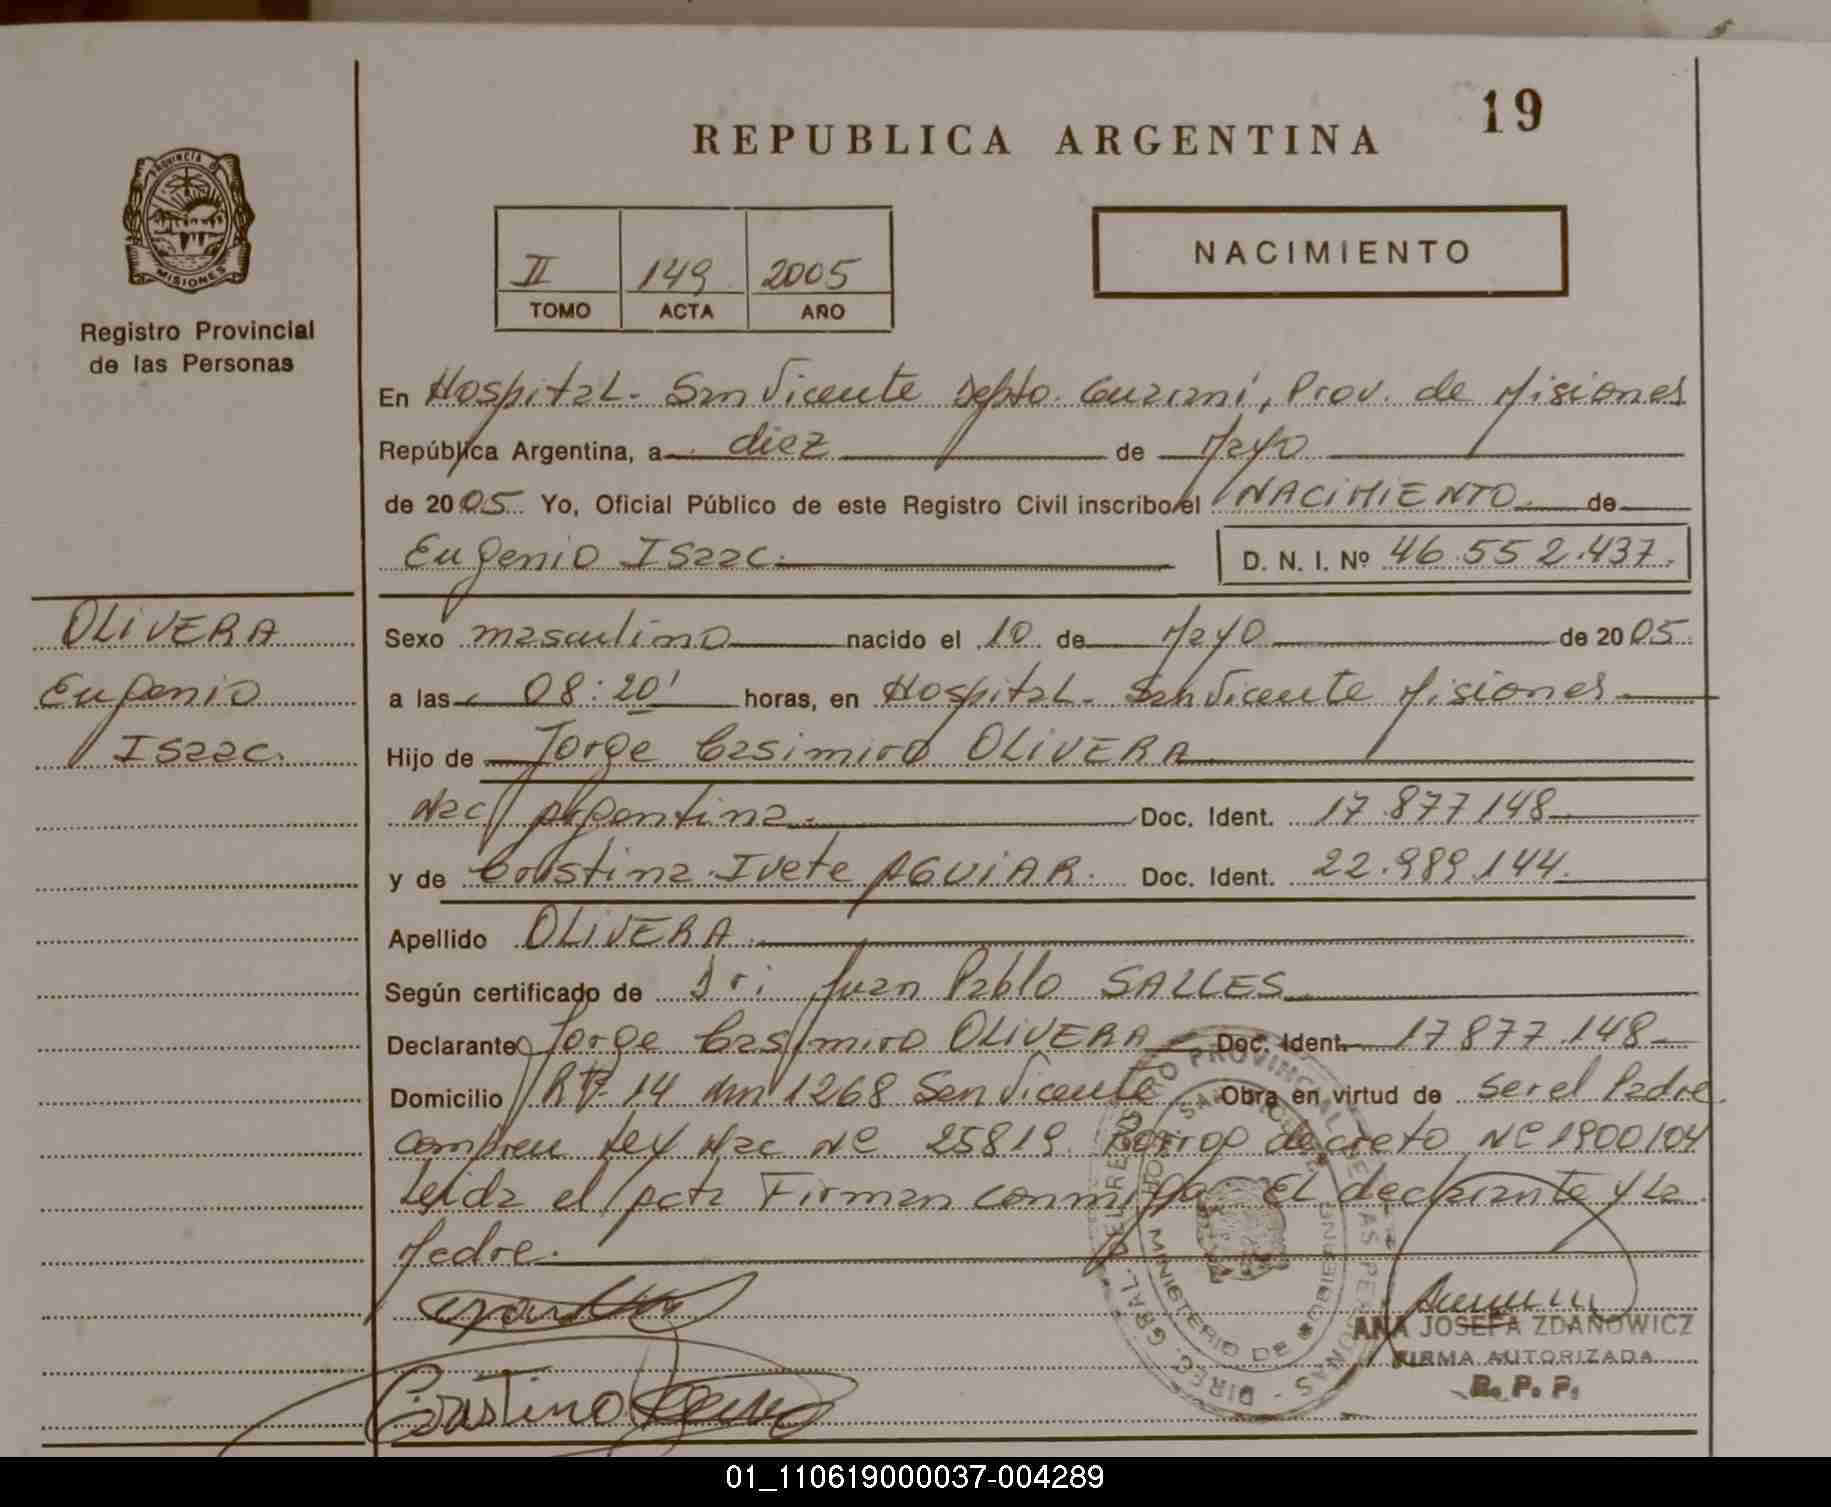 19
REPUBLICA ARGENTINA
PROVINCIA D
MISIONES
Registro Provincial
de las Personas
II 149 2005
TOMO ACTA AÑO
NACIMIENTO
En Hospital - San Vicente Depto. Guaraní, Prov. de Misiones
República Argentina, a diez de Mayo
de 2005 Yo, Oficial Público de este Registro Civil inscribo el NACIMIENTO de
Eugenio Isaac. D. N. I. Nº 46.552.437.
OLIVERA
Eugenio
Isaac.
Sexo masculino nacido el 10 de Mayo de 2005
a las 08:20' horas, en Hospital - San Vicente Misiones
Hijo de Jorge Casimiro OLIVERA
Nac Argentina. Doc. Ident. 17.877 148
y de Cristina Ivete AGUIAR. Doc. Ident. 22.989.144.
Apellido OLIVERA.
Según certificado de Dr: Juan Pablo SALLES
Declarante Jorge Casimiro OLIVERA Doc. Ident. 17877.148
Domicilio 14 Km 1268 San Vicente Obra en virtud de ser el Padre
Ley Nac Nº 25819. decreto Nº 1900/04
Leida el Acta Firman conmigo El declarante y la
Madre.
Cristina
DIREC. GRAL. DEL REGISTRO PROVINCIAL DE LAS PERSONAS
MINISTERIO DE GOBIERNO
ANA JOSEFA ZDANOWICZ
FIRMA AUTORIZADA
R. P. P.
01_110619000037-004289